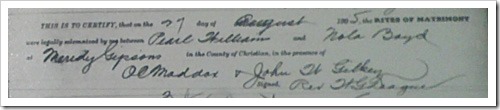 THIS IS TO CERTIFY, that on the 27 day of August 1905, the RITES OF MATRIMONY
were legally solemnized by me between Pearl Williams and Nola Boyd
at Meridy Gipsons in the County of Christian, in the presence of
O C Maddox & John W Gilkey
Signed Rev W G Teague